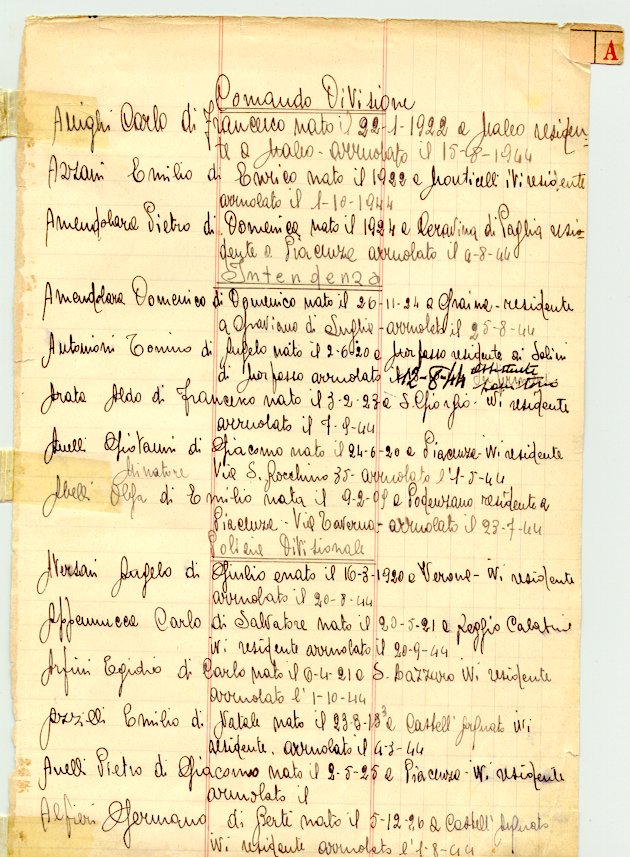 A
Comando Divisione
Arrighi Carlo di Francesco nato il 22-1-1922 a Maleo residen-
te a Maleo - arruolato il 15-8-1944
Azzani Emilio di Enrico nato il 1922 a Monticelli ivi residente
arruolato il 1-10-1944
Amendolara Pietro di Domenico nato il 1924 a di Puglia resi-
dente a Piacenza arruolato il 9-8-44
Intendenza
Amendolara Domenico di Domenico nato il 26-11-24 a residente
a di Puglia - arruolato il 25-8-44
Antonioni Tonino di Angelo nato il 2-6-20 a Morfasso residente ai
di Morfasso arruolato il 12-8-44
Arata Aldo di Francesco nato il 3-2-23 a S. Giorgio - ivi residente
arruolato il 7-9-44
Anelli Giovanni di Giacomo nato il 24-6-20 a Piacenza ivi residente
Via S. Rocchino 35 - arruolato l'1-5-44
Minatore
Abelli Olga di Emilio nata il 9-2-09 a Podenzano residente a
Piacenza - Via Taverna - arruolato il 23-7-44
Polizia Divisionale
Angelo di Giulio nato il 16-3-1920 a Verona - ivi residente
arruolato il 20-8-44
Carlo di Salvatore nato il 20-5-21 a Reggio Calabria
ivi residente arruolato il 20-9-44
Arfini Egidio di Carlo nato il 6-4-21 a S. Lazzaro ivi residente
arruolato l'1-10-44
Azzilli Emilio di Natale nato il a Castell'Arquato ivi
residente. arruolato il 4-3-44
Anelli Pietro di Giacomo nato il 2-5-25 a Piacenza - ivi residente
arruolato il
Alfieri Germano di Berté nato il 5-12-26 a Castell'Arquato
ivi residente arruolato l'1-8-44